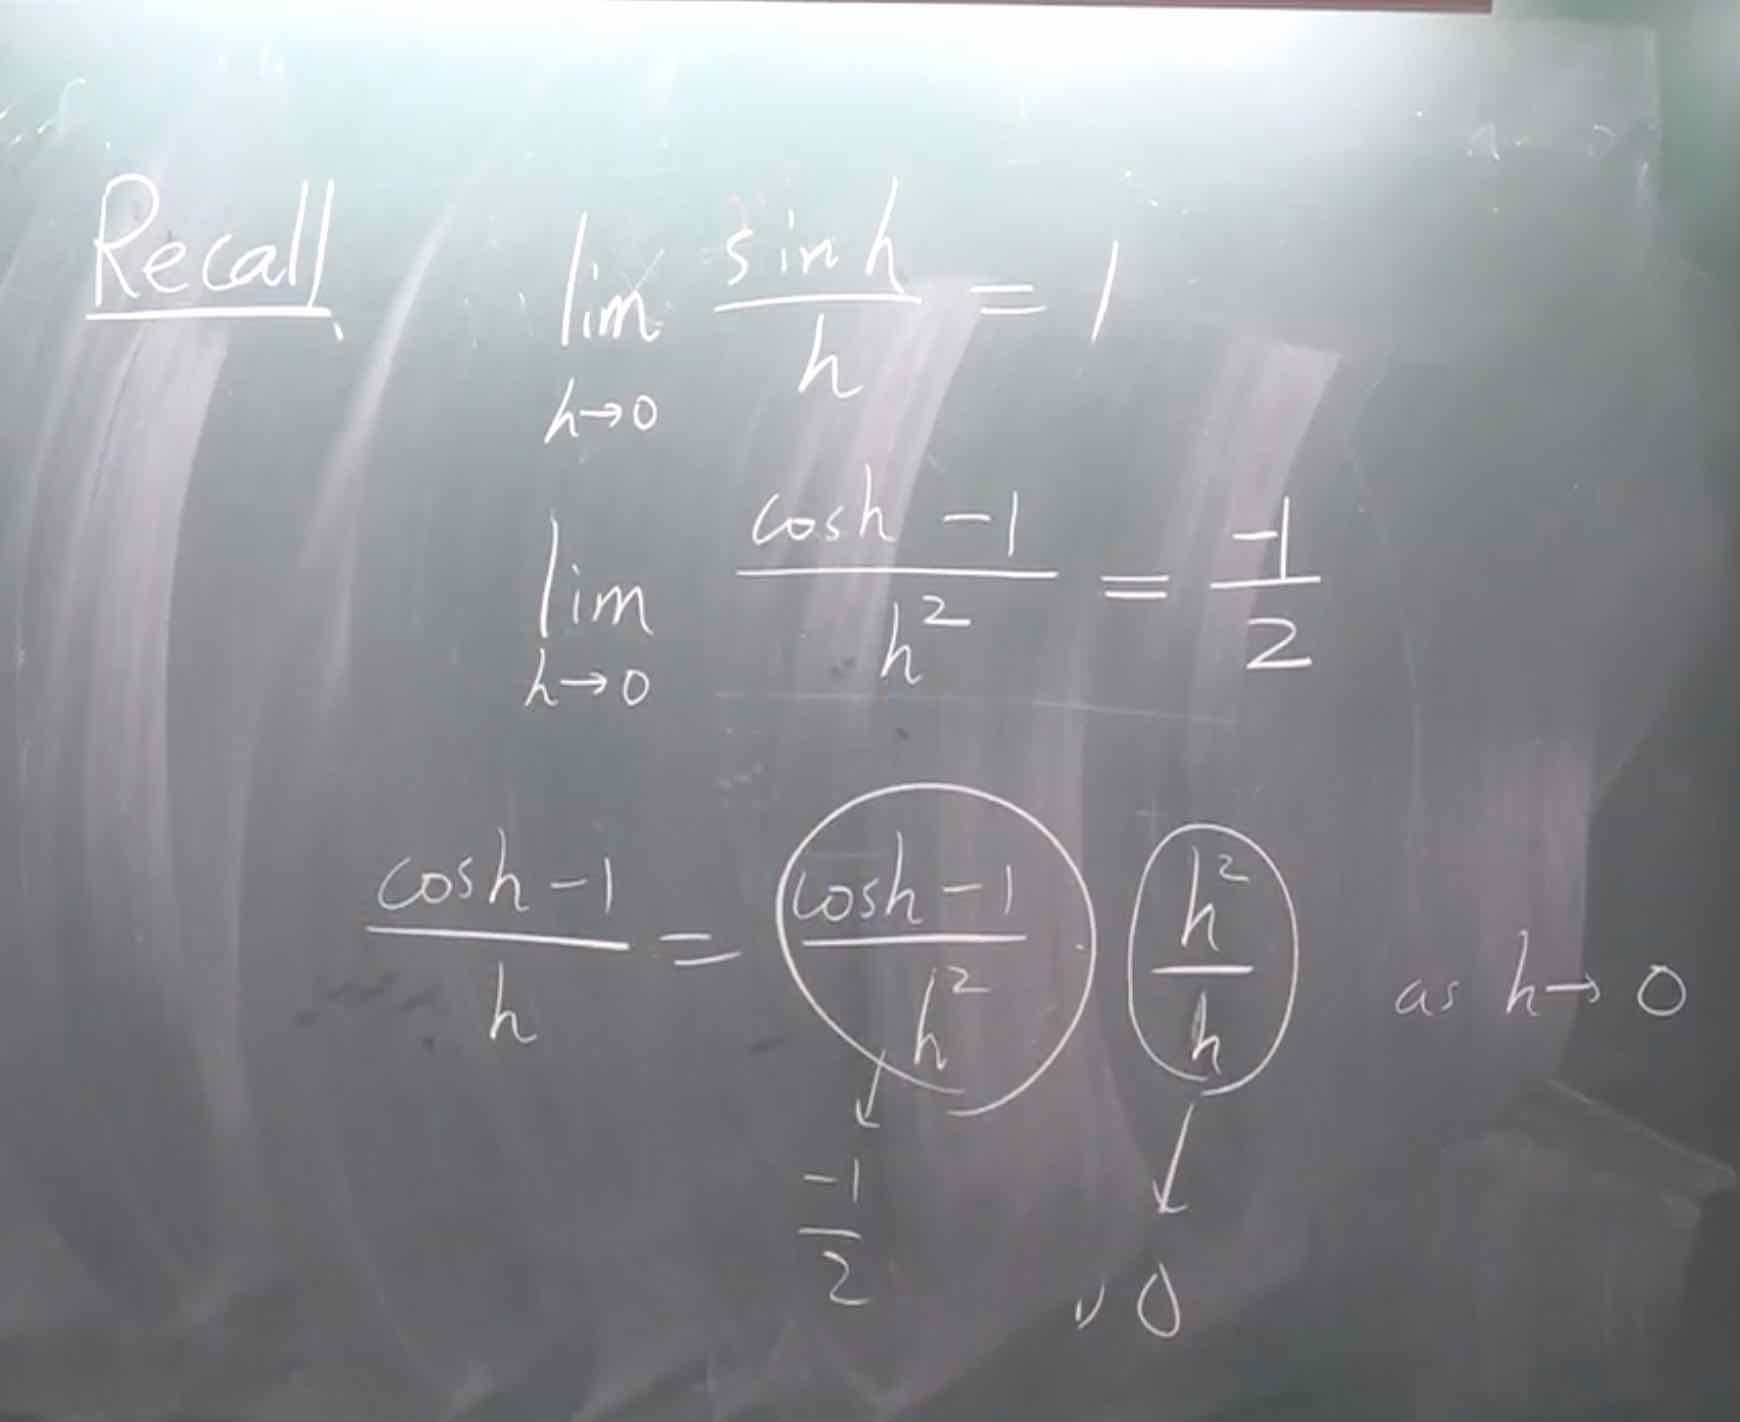 Recall lim_{h→0} sin h / h = 1
lim_{h→0} (cos h - 1) / h² = -1/2
(cos h - 1) / h = (cos h - 1) / h² · h² / h as h → 0
-1/2 0